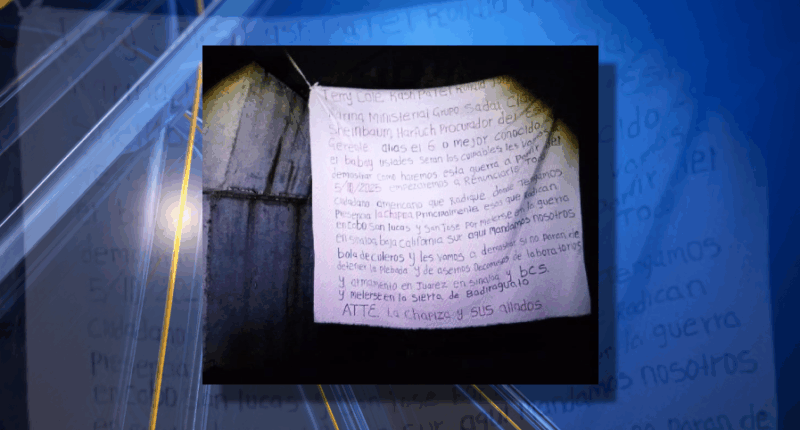 Terry Cole, Kash Patel Ronald
Marina Ministerial Grupo Sadai
Sheinbaum Harfuch Procurador del
Gerente alias el 6 o mejor conocido
el ustedes seran los culpables les
demostrar como haremos esta guerra a Partir del
5/ /2025 empezaremos a
Ciudadano americano que Radique donde Tengamos
Presencia la chapisa Principalmente esos que Radican
en Cabo San lucas y San Jose por meterse en la guerra
en sinaloa, baja California sur aqui Mandamos nosotros
bola de culeros y les vamos a demostrar si no paran de
detener la Plebada y de aSernos Decomisos de laboratorios
y armamento en Juarez en sinaloa y bcs.
y meterse en la Sierra de Badiraguato
ATTE. La chapiza y SUS aliados